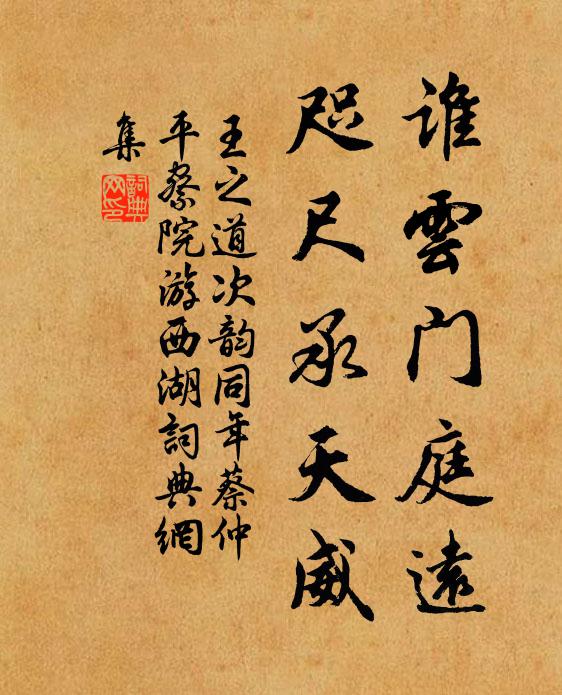 誰雲門庭遠
咫尺承天威
王之道次韵同年蔡仲
平察院游西湖詞典網
集
詞典网印